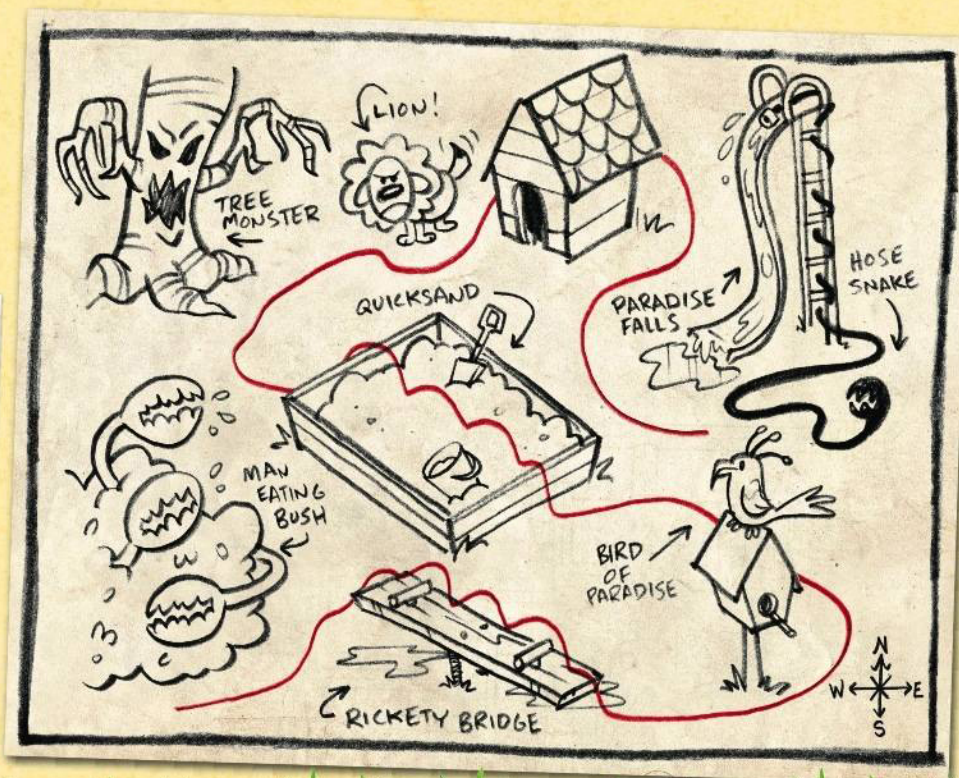 LION!
TREE
MONSTER
QUICKSAND
PARADISE
FALLS
HOSE
SNAKE
MAN
EATING
BUSH
BIRD
OF
PARADISE
RICKETY BRIDGE
N
W E
S